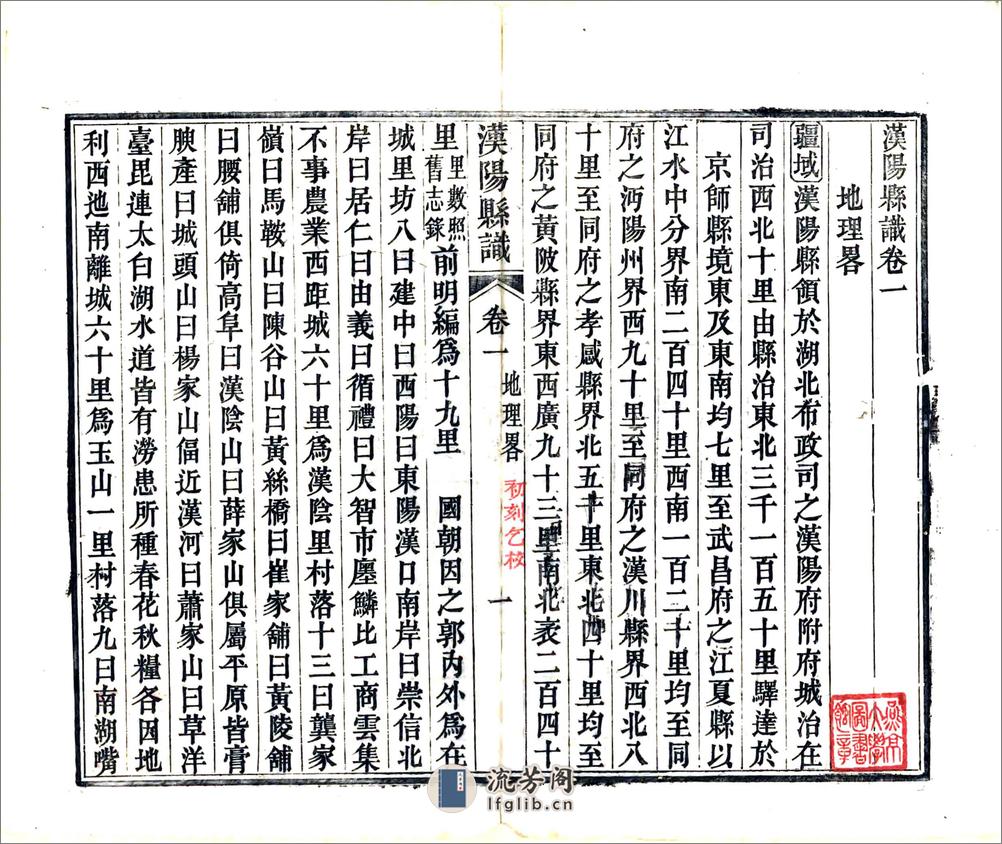 漢陽縣識卷一
地理畧
疆域漢陽縣領於湖北布政司之漢陽府附府城治在
司治西北十里由縣治東北三千一百五十里驛達於
京師縣境東及東南均七里至武昌府之江夏縣以
江水中分界南二百四十里西南一百二十里均至同
府之沔陽州界西九十里至同府之漢川縣界西北八
十里至同府之孝感縣界北五十里東北四十里均至
同府之黃陂縣界東西廣九十三里南北袤二百四十
漢陽縣識 卷一 地理畧 初刻乞校 一
里里數照舊志錄前明編爲十九里 國朝因之郭內外爲在
城里坊八曰建中曰西陽曰東陽漢口南岸曰崇信北
岸曰居仁曰由義曰循禮曰大智市廛鱗比工商雲集
不事農業西距城六十里爲漢陰里村落十三曰龔家
嶺曰馬鞍山曰陳谷山曰黃絲橋曰崔家舖曰黃陵舖
曰腰舖俱倚高阜曰漢陰山曰薛家山俱屬平原皆膏
腴產曰城頭山曰楊家山偪近漢河曰蕭家山曰草洋
臺毘連太白湖水道皆有澇患所種春花秋糧各因地
利西迆南離城六十里爲玉山一里村落九曰南湖嘴
燕京大學圖書館章
流芳阁
lfglib.cn